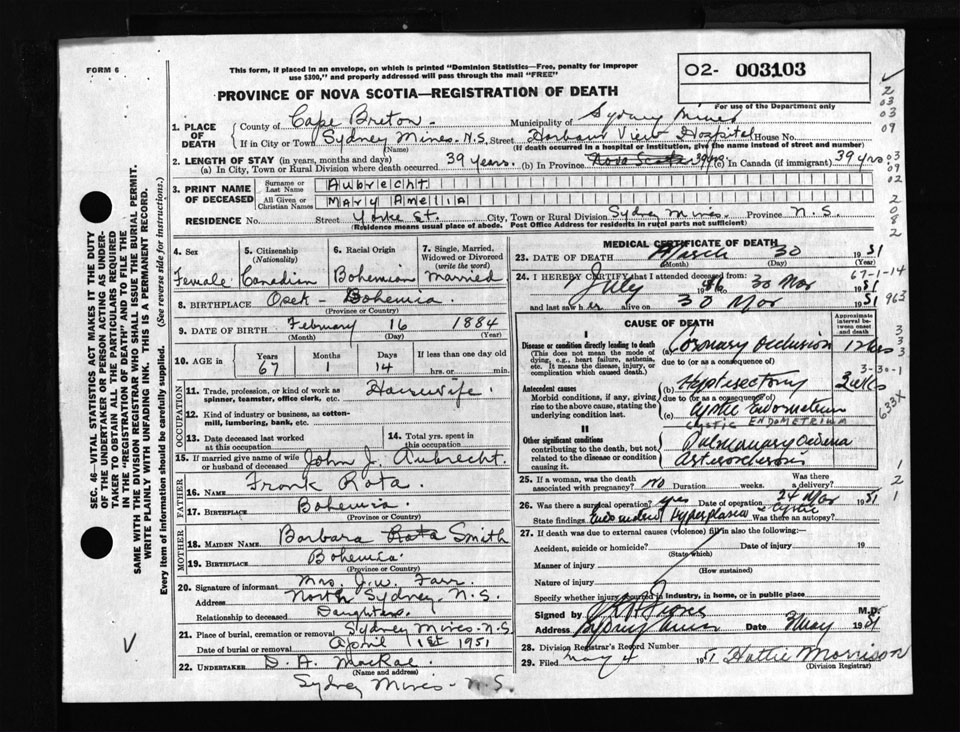 FORM 6
This form, if placed in an envelope, on which is printed "Dominion Statistics—Free, penalty for improper
use $300," and properly addressed will pass through the mail "FREE"
02- 003103
For use of the Department only
PROVINCE OF NOVA SCOTIA—REGISTRATION OF DEATH
1. PLACE OF DEATH
County of Cape Breton Municipality of Sydney Mines
If in City or Town Sydney Mines. N.S. Street Harbour View Hospital House No.
(Name) (If death occurred in a hospital or institution, give the name instead of street and number)
2. LENGTH OF STAY (in years, months and days)
(a) In City, Town or Rural Division where death occurred 39 years. (b) In Province Nova Scotia 39 yrs. (c) In Canada (if immigrant) 39 yrs
3. PRINT NAME OF DECEASED
Surname or Last Name Aubrecht
All Given or Christian Names Mary Amellia
RESIDENCE No. Street Yorke St. City, Town or Rural Division Sydney Mines. Province N.S.
(Residence means usual place of abode. Post Office Address for residents in rural parts not sufficient)
4. Sex Female
5. Citizenship (Nationality) Canadian
6. Racial Origin Bohemian
7. Single, Married, Widowed or Divorced (write the word) Married
8. BIRTHPLACE Osek - Bohemia.
(Province or Country)
9. DATE OF BIRTH February 16 1884
(Month) (Day) (Year)
10. AGE in Years 67 Months 1 Days 14 If less than one day old
hrs. or min.
OCCUPATION
11. Trade, profession, or kind of work as spinner, teamster, office clerk, etc. Housewife.
12. Kind of industry or business, as cotton-mill, lumbering, bank, etc.
13. Date deceased last worked at this occupation
14. Total yrs. spent in this occupation
15. If married give name of wife or husband of deceased John J. Aubrecht.
FATHER
16. NAME Frank Rata.
17. BIRTHPLACE Bohemia.
(Province or Country)
MOTHER
18. MAIDEN NAME Barbara Rata Smith
19. BIRTHPLACE Bohemia.
(Province or Country)
20. Signature of informant Mrs. J. W. Farr.
Address North Sydney. N.S.
Relationship to deceased Daughter.
21. Place of burial, cremation or removal Sydney Mines. N.S.
Date of burial or removal April 1st 1951
22. UNDERTAKER D. A. MacRae.
(Name and address)
Sydney Mines - N.S.
MEDICAL CERTIFICATE OF DEATH
23. DATE OF DEATH March 30 1951
(Month) (Day) (Year)
67-1-14
24. I HEREBY CERTIFY that I attended deceased from:
July 1946 to 30 Mar 1951
and last saw her alive on 30 Mar 1951
963
CAUSE OF DEATH
Approximate interval between onset and death
I
Disease or condition directly leading to death
(This does not mean the mode of dying, e.g., heart failure, asthenia, etc. It means the disease, injury, or complication which caused death.)
(a) Coronary Occlusion 12 hrs
due to (or as a consequence of)
Antecedent causes
Morbid conditions, if any, giving rise to the above cause, stating the underlying condition last.
(b)
due to (or as a consequence of)
(c) Cystic Endometrium
CYSTIC ENDOMETRIUM
3-30-1
633X
II
Other significant conditions contributing to the death, but not related to the disease or condition causing it.
Pulmonary Oedema
25. If a woman, was the death associated with pregnancy? No Duration weeks. Was there a delivery?
26. Was there a surgical operation? yes Date of operation 24 Mar 1951
State findings Hyperplasia & Cystic Was there an autopsy?
27. If death was due to external causes (violence) fill in also the following:—
Accident, suicide or homicide? Date of injury 19
(State which)
Manner of injury
(How sustained)
Nature of injury
Specify whether injury occurred in industry, in home, or in public place
Signed by M.D.
Address Sydney Mines Date 3 May 1951
28. Division Registrar's Record Number
29. Filed May 4 1951 Hattie Morrison
(Division Registrar)
SEC. 46—VITAL STATISTICS ACT MAKES IT THE DUTY
OF THE UNDERTAKER OR PERSON ACTING AS UNDERTAKER TO OBTAIN ALL THE PARTICULARS REQUIRED
IN THE "REGISTRATION OF DEATH" AND TO FILE THE
SAME WITH THE DIVISION REGISTRAR WHO SHALL ISSUE THE BURIAL PERMIT.
WRITE PLAINLY WITH UNFADING INK. THIS IS A PERMANENT RECORD.
Every item of information should be carefully supplied. (See reverse side for instructions.)